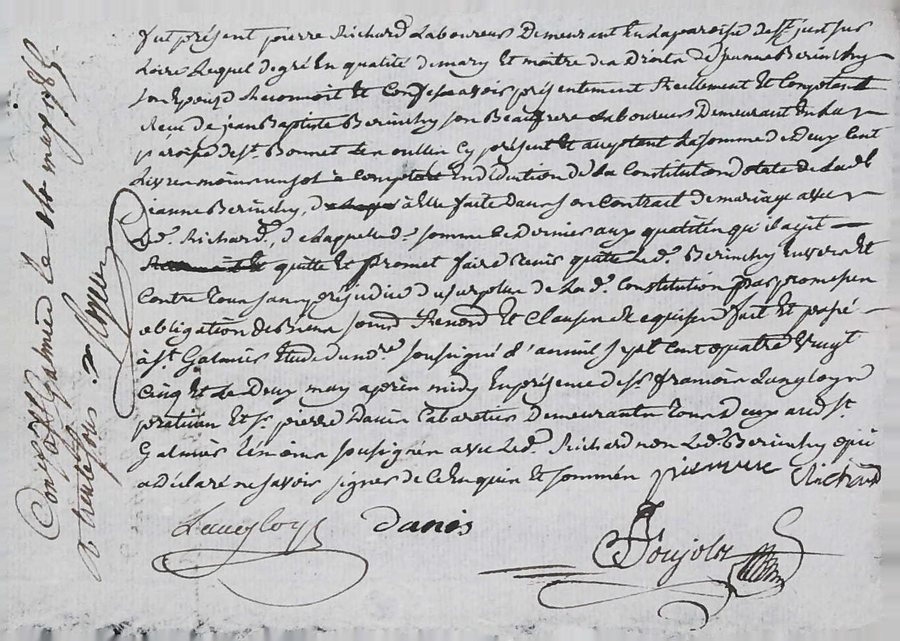 fut présent pierre Richard Laboureur Demeurant En Laparoisse de St. just sur
Loire Lequel degré En qualité de mary Et maitre des Droits de jeanne Berinchy
son Epouse Reconnoit Et Confesse avoir présentement Reellement Et Comptant
Receu de jean Baptiste Berinchy son Beaufrere Laboureur Demeurant En La
paroisse de St. Bonnet Les oullies Cy présent Et acceptant La somme de Deux Cent
Livres moins un sol à Compte Et En Diduction de La Constitution dotale de Lad.
jeanne Berinchy, à Elle faite Dans son Contract de mariage avec
Led. Richard, de Laquelle d. somme Ce Dernier aux qualités qu'il agit
quitte Et promet faire tenir quitte Led. Berinchy Envers Et
Contre tous sans préjudice du surplus de Lad. Constitution par promesses
obligation de Biens soumd. Renond. Et Clauses Requises fait Et passé
à St. Galmier Etude du nre. soussigné L'an mil sept Cent quatre vingt
Cinq Et Le Deux may après midy En présence de sr. françois Langloys
praticien Et sr. pierre Danis Cabaretier Demeurants tous Deux aud. St.
Galmier témoins soussignés avec Led. Richard non Led. Berinchy qui
a Déclaré ne savoir signer de Ce Enquis Et sommés
pierre Richard
Langloys Danis
Poujolat
Con. à St. Galmier le 10 may 1785